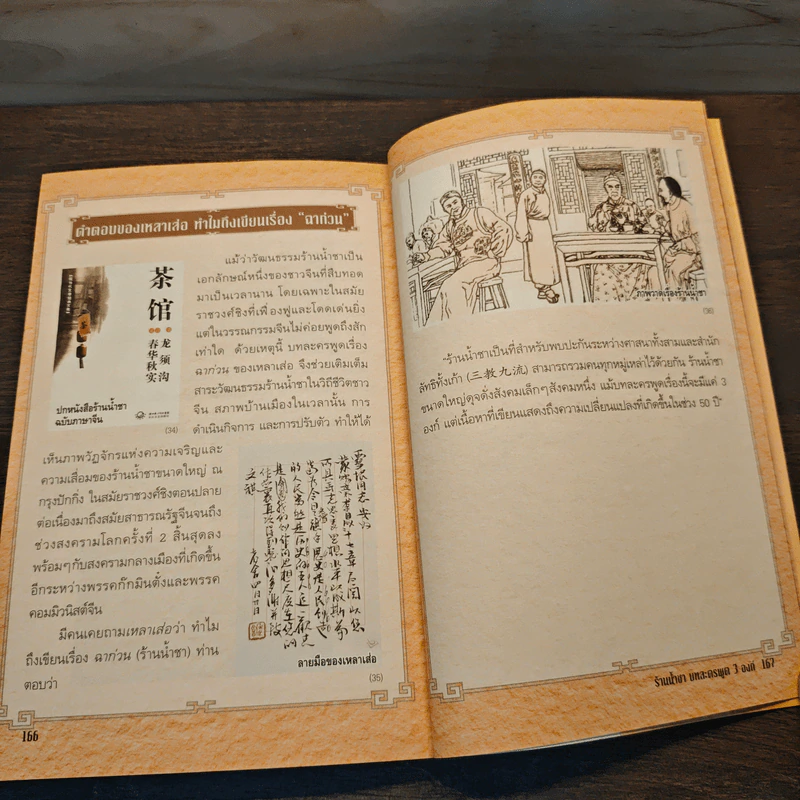 คำตอบของเหลาเส่อ ทำไมถึงเขียนเรื่อง "ฉาก่วน"
茶馆
龙须沟
春华秋实
ปกหนังสือร้านน้ำชา
ฉบับภาษาจีน
(34)
แม้ว่าวัฒนธรรมร้านน้ำชาเป็น
เอกลักษณ์หนึ่งของชาวจีนที่สืบทอด
มาเป็นเวลานาน โดยเฉพาะในสมัย
ราชวงศ์ชิงที่เฟื่องฟูและโดดเด่นยิ่ง
แต่ในวรรณกรรมจีนไม่ค่อยพูดถึงสัก
เท่าใด ด้วยเหตุนี้ บทละครพูดเรื่อง
ฉาก่วน ของเหลาเส่อ จึงช่วยเติมเต็ม
สาระวัฒนธรรมร้านน้ำชาในวิถีชีวิตชาว
จีน สภาพบ้านเมืองในเวลานั้น การ
ดำเนินกิจการ และการปรับตัว ทำให้ได้
เห็นภาพวัฏจักรแห่งความเจริญและ
ความเสื่อมของร้านน้ำชาขนาดใหญ่ ณ
กรุงปักกิ่ง ในสมัยราชวงศ์ชิงตอนปลาย
ต่อเนื่องมาถึงสมัยสาธารณรัฐจีนจนถึง
ช่วงสงครามโลกครั้งที่ 2 สิ้นสุดลง
พร้อมๆกับสงครามกลางเมืองที่เกิดขึ้น
อีกระหว่างพรรคก๊กมินตั๋งและพรรค
คอมมิวนิสต์จีน
มีคนเคยถามเหลาเส่อว่า ทำไม
ถึงเขียนเรื่อง ฉาก่วน (ร้านน้ำชา) ท่าน
ตอบว่า
ลายมือของเหลาเส่อ
(35)
166
ภาพวาดเรื่องร้านน้ำชา
(36)
"ร้านน้ำชาเป็นที่สำหรับพบปะกันระหว่างศาสนาทั้งสามและสำนัก
ลัทธิทั้งเก้า (三教九流) สามารถรวมคนทุกหมู่เหล่าไว้ด้วยกัน ร้านน้ำชา
ขนาดใหญ่ดุจดั่งสังคมเล็กๆสังคมหนึ่ง แม้บทละครพูดเรื่องนี้จะมีแค่ 3
องก์ แต่เนื้อหาที่เขียนแสดงถึงความเปลี่ยนแปลงที่เกิดขึ้นในช่วง 50 ปี"
ร้านน้ำชา บทละครพูด 3 องก์ 167